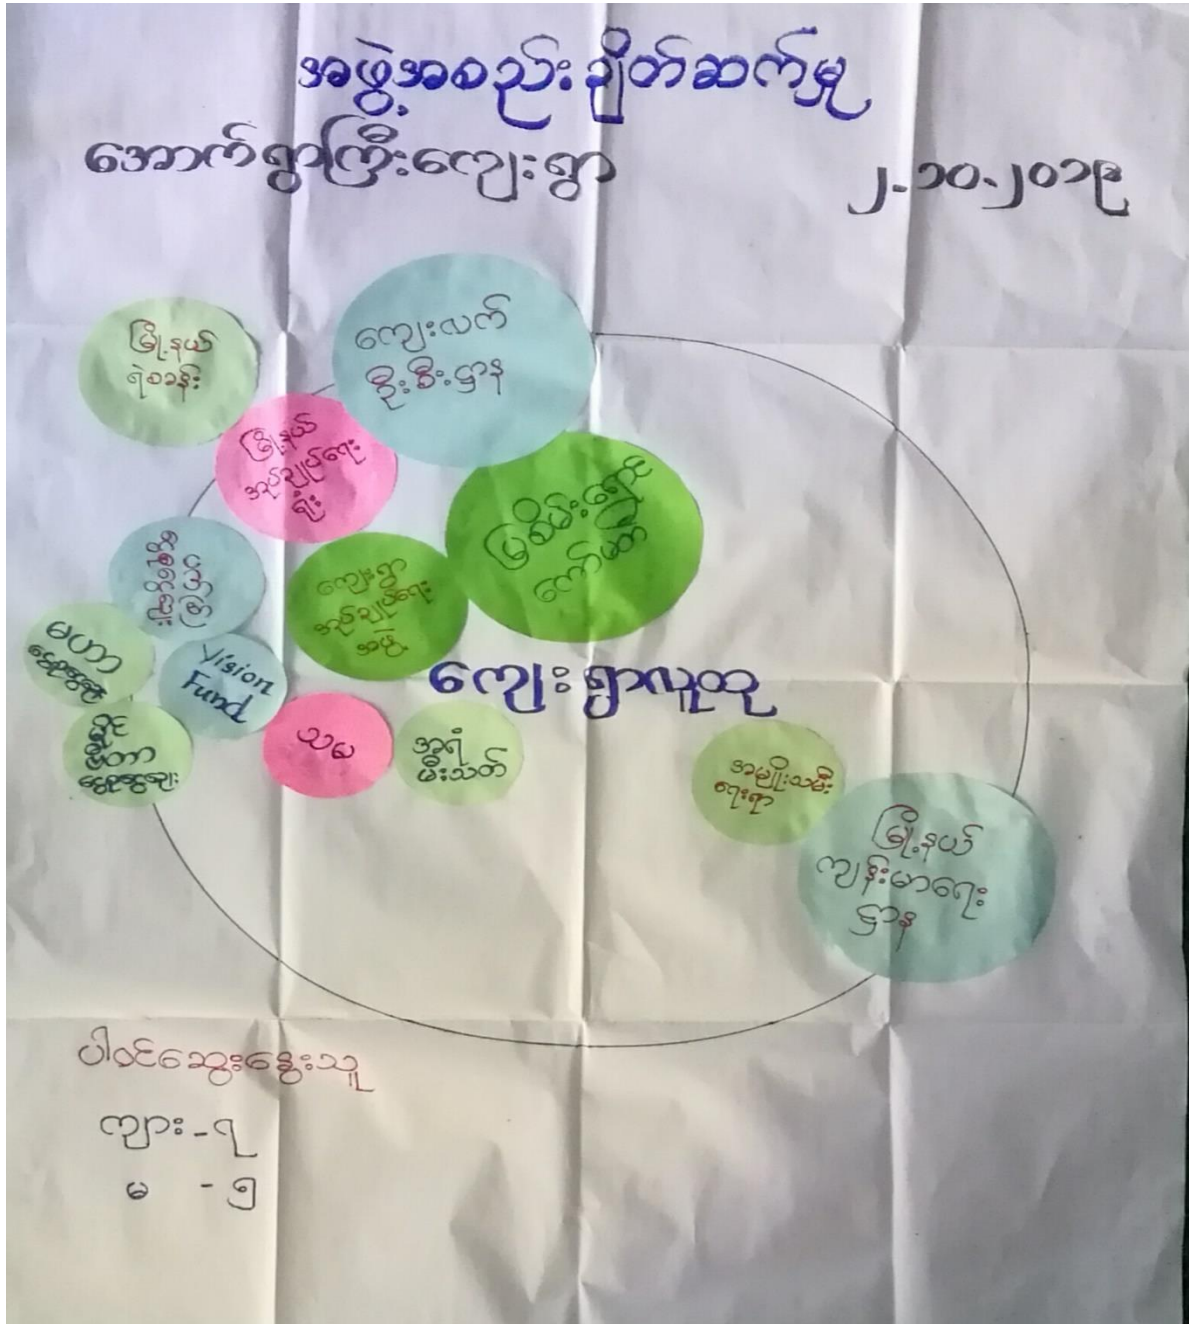 အဖွဲ့အစည်းချိတ်ဆက်မှု
အောက်ရွာကြီးကျေးရွာ
၂-၁၀-၂၀၁၉
မြို့နယ်
ရဲစခန်း
ကျေးလက်
ဦးစီးဌာန
မြို့နယ်
အုပ်ချုပ်ရေး
ရုံး
မြစိမ်းရောင်
ကော်မတီ
ကျေးရွာ
အုပ်ချုပ်ရေး
အဖွဲ့
မဟာ
Vision
Fund
ကျေးရွာလူထု
သမ
အရံ
မီးသတ်
အမျိုးသမီး
ရေးရာ
မြို့နယ်
ကျန်းမာရေး
ဌာန
ပါဝင်ဆွေးနွေးသူ
ကျား - ၇
မ - ၅